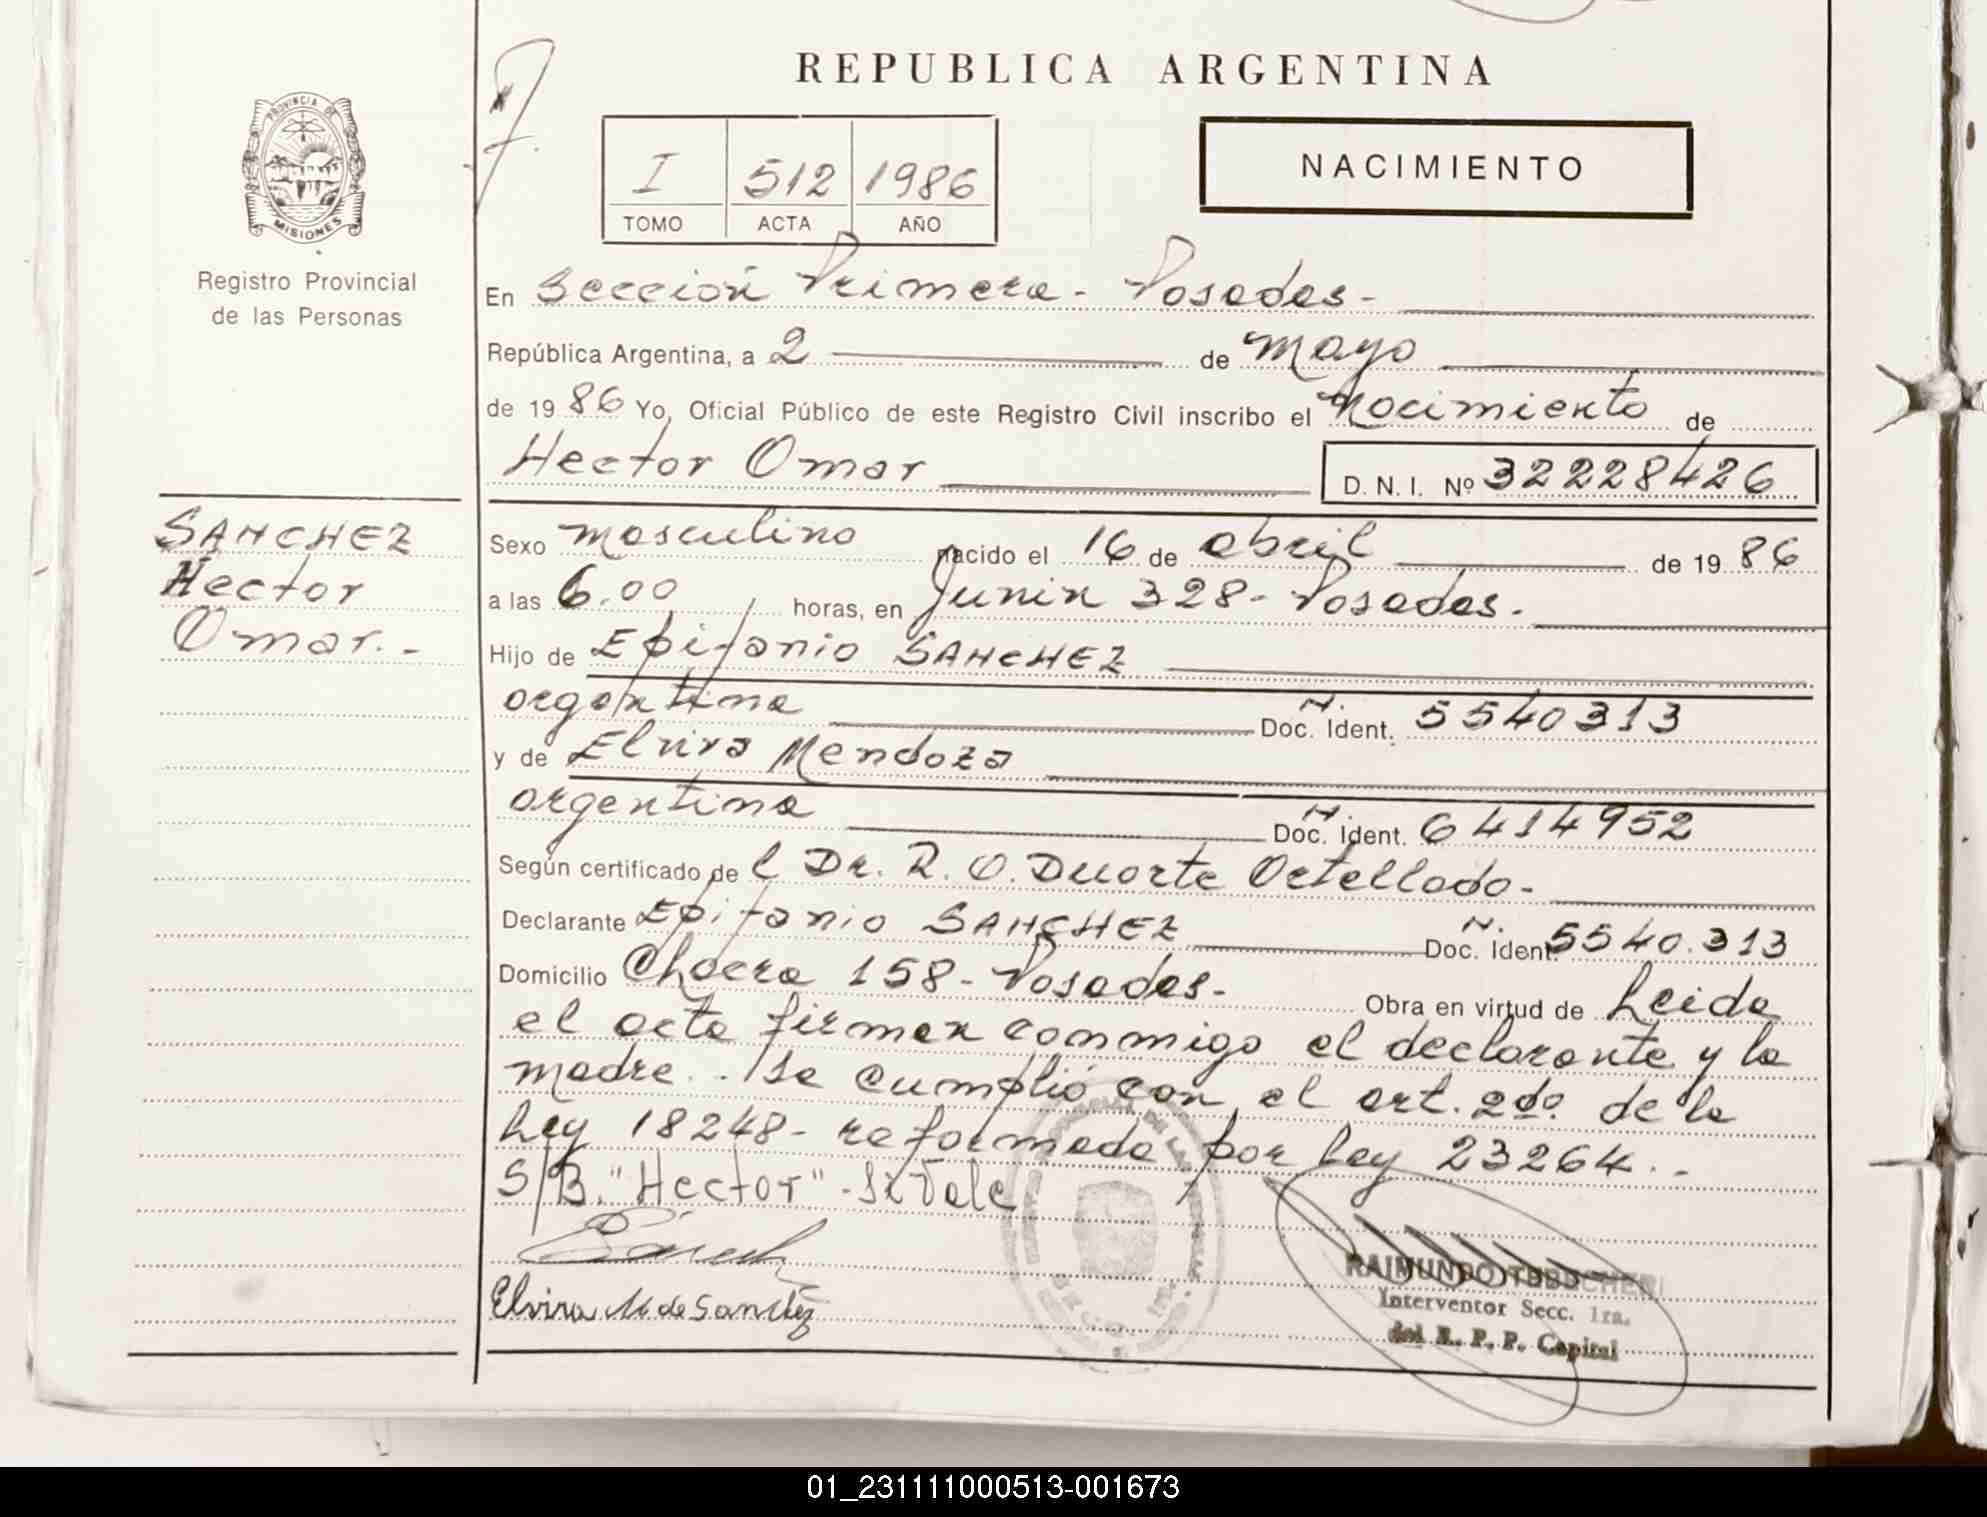 REPUBLICA ARGENTINA
PROVINCIA DE
MISIONES
Registro Provincial
de las Personas
I 512 1986
TOMO ACTA AÑO
NACIMIENTO
En Sección Primera - Posadas -
República Argentina, a 2 de mayo
de 1986 Yo, Oficial Público de este Registro Civil inscribo el Nacimiento de
Hector Omar D. N. I. Nº 32228426
SANCHEZ
Hector
Omar. -
Sexo masculino nacido el 16 de abril de 1986
a las 6.00 horas, en Junin 328 - Posadas -
Hijo de Epifanio SANCHEZ
argentina Doc. Ident. 5540313
y de Elvira Mendoza
argentina Doc. Ident. 6414952
Según certificado de l Dr. R. O. Duarte Ortellado -
Declarante Epifanio SANCHEZ Doc. Ident 5540.313
Domicilio Chacra 158 - Posadas - Obra en virtud de Leida
el acta firman conmigo el declarante y la
madre. - Se cumplió con el art. 2do. de la
Ley 18248 - reformada por ley 23264. -
S/B. "Hector" - Si Vale
Elvira M de Sanchez
RAIMUNDO
Interventor Secc. 1ra.
del R. P. P. Capital
01_231111000513-001673